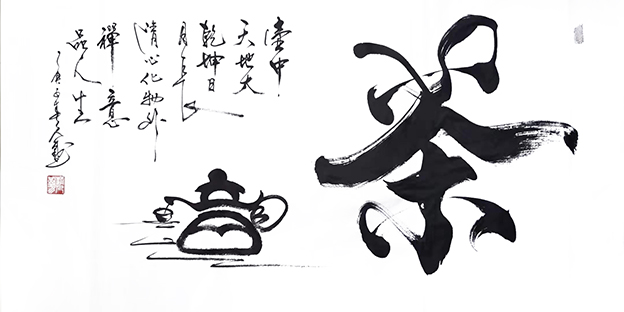 茶
壺中
天地大
乾坤日
月长
清心化物外
禪意
品人生